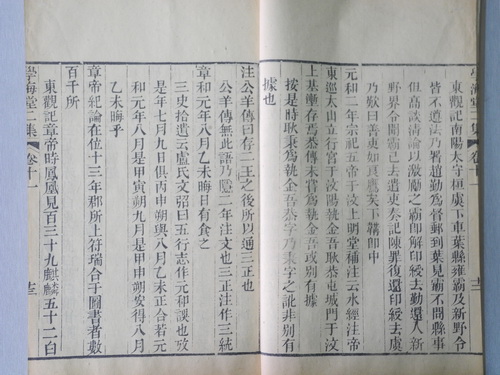 學海堂二集 卷十一 十二
東觀記南陽太守桓虞下車葉縣雍霸及新野令
皆不遵法乃署趙勤為督郵到葉見霸不問縣事
但高談清論以激勵之霸即解印綬去勤還入新
野界令聞霸已去遣吏奏記陳罪復還印綬去虞
乃歎曰善吏如良鷹矣下韝即中
元和二年宗祀五帝于汶上明堂補注云水經注帝
東巡太山立行宮于汶陽執金吾恭屯城門于汶
上基壍存焉恭傳未嘗為執金吾或別有據
按是時耿秉為執金吾恭字乃秉字之訛非別有
據也
注公羊傳曰存二王之後所以通三正也
公羊傳無此語乃隱三年注文也三正注作三統
章和元年八月乙未晦日有食之
三史拾遺云盧氏文弨曰五行志作元和誤也攷
是年七月九月俱丙申朔與八月乙未正合若元
和元年八月是甲寅朔九月是甲申朔安得八月
乙未晦乎
章帝紀論在位十三年郡所上符瑞合于圖書者數
百千所
東觀記章帝時鳳凰見百三十九麒麟五十二白
學海堂二集 卷十一 十三